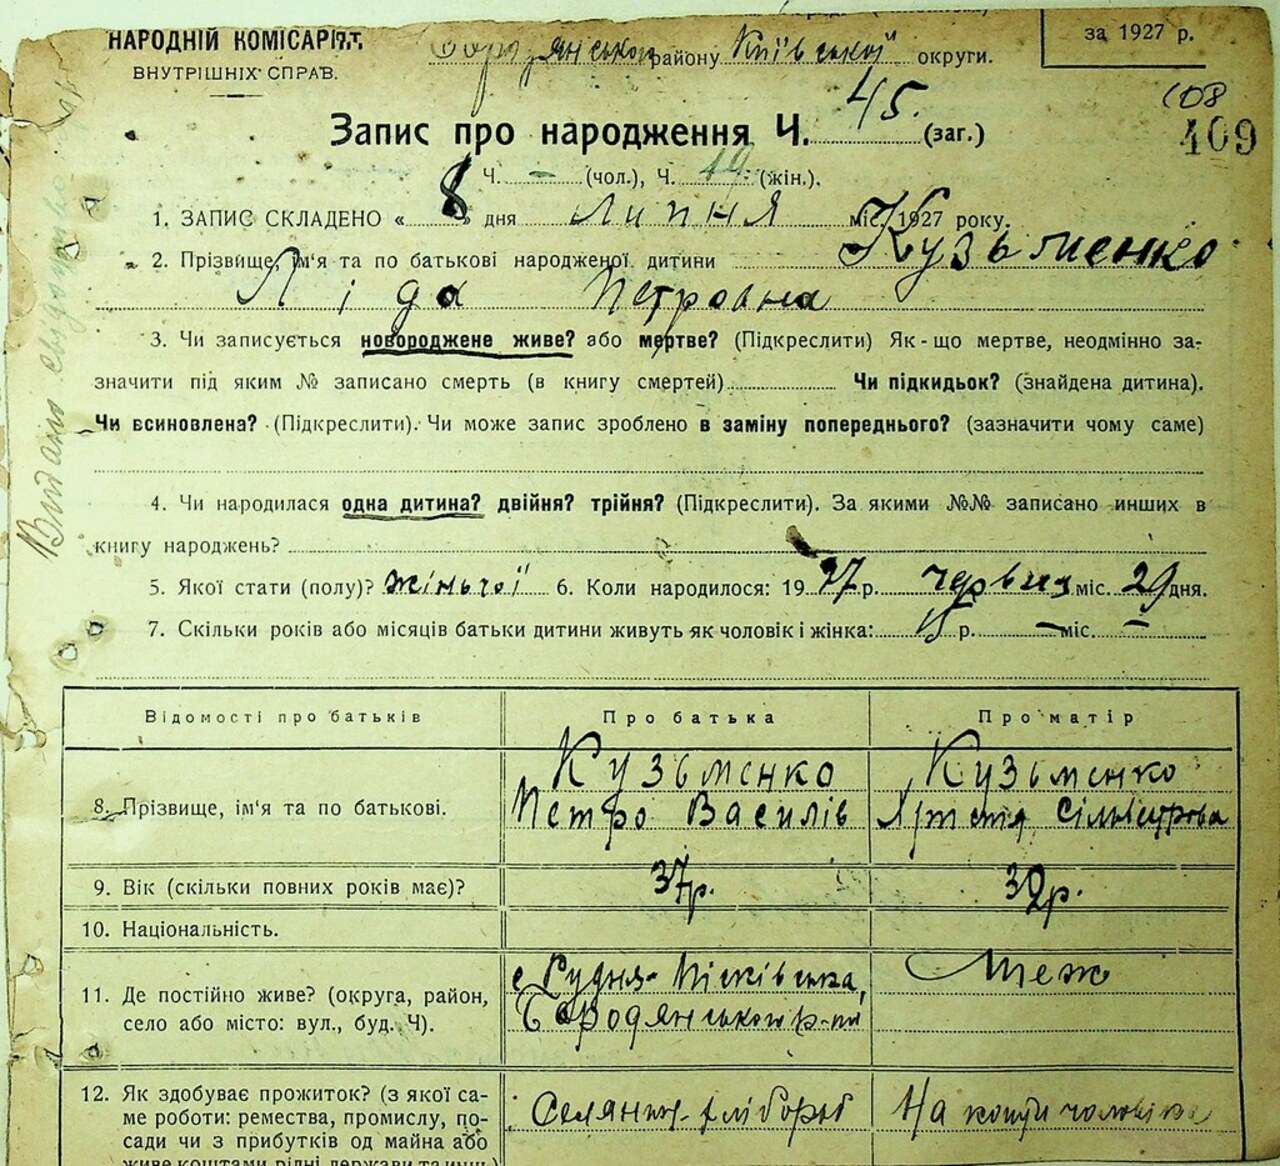 НАРОДНІЙ КОМІСАРІЯТ
ВНУТРІШНІХ СПРАВ.
району Київської округи.
за 1927 р.
108
409
Запис про народження Ч. 45. (заг.)
Ч. – (чол.), Ч. 19 (жін.).
1. ЗАПИС СКЛАДЕНО « 8 » дня липня міс. 1927 року.
2. Прізвище, ім'я та по батькові народженої дитини Кузьменко
Ліда Петровна
3. Чи записується новороджене живе? або мертве? (Підкреслити) Як-що мертве, неодмінно за-
значити під яким № записано смерть (в книгу смертей) Чи підкидьок? (знайдена дитина).
Чи всиновлена? (Підкреслити). Чи може запис зроблено в заміну попереднього? (зазначити чому саме)
4. Чи народилася одна дитина? двійня? трійня? (Підкреслити). За якими №№ записано инших в
книгу народжень?
5. Якої стати (полу)? жіночої 6. Коли народилося: 19 27 р. червня міс. 29 дня.
7. Скільки років або місяців батьки дитини живуть як чоловік і жінка: 15 р. – міс. –
Видано свідоцтво
Відомості про батьків Про батька Про матір
8. Прізвище, ім'я та по батькові. Кузьменко Петро Василів Кузьменко Сільвестрова
9. Вік (скільки повних років має)? 37р. 32р.
10. Національність.
11. Де постійно живе? (округа, район, с Рудня-Пісківська, Теж
село або місто: вул., буд. Ч). Бородянського р-ну
12. Як здобуває прожиток? (з якої са- Селянин-хлібороб На кошти чоловіка
ме роботи: ремества, промислу, по-
сади чи з прибутків од майна або
живе коштами рідні, держави та инш.)